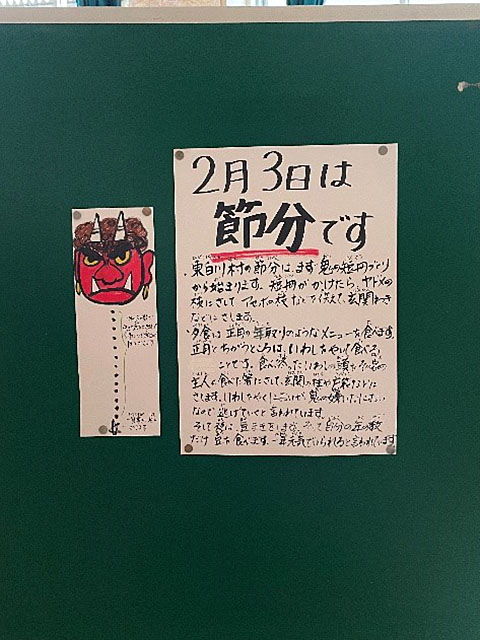 2月3日は
節分です
東白川村の節分は、まず鬼の短冊づくり
から始まります。短冊がかけたら、ヤドメの
枝にさして アセボの枝などを添えて、玄関わき
などにさします。
夕食は正月の年取りのようなメニューを食べます。
正月とちがうところは、いわしをやいて食べる
ことです。食べ終ったいわしの頭をその家の
主人が食べた箸にさして、玄関の柱や
さします。いわしをやくにおいが、鬼の嫌いなにおい
なので逃げていくと言われています。
そして夜に、豆まきをします。そして自分の年の数
だけ豆を食べます。一年元気でいられると言われています